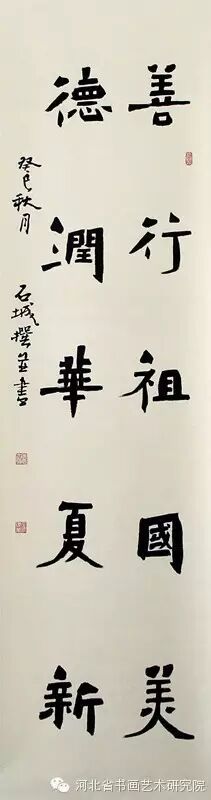 善行祖國美
德潤華夏新
癸巳秋月
石城撰並書
河北省书画艺术研究院